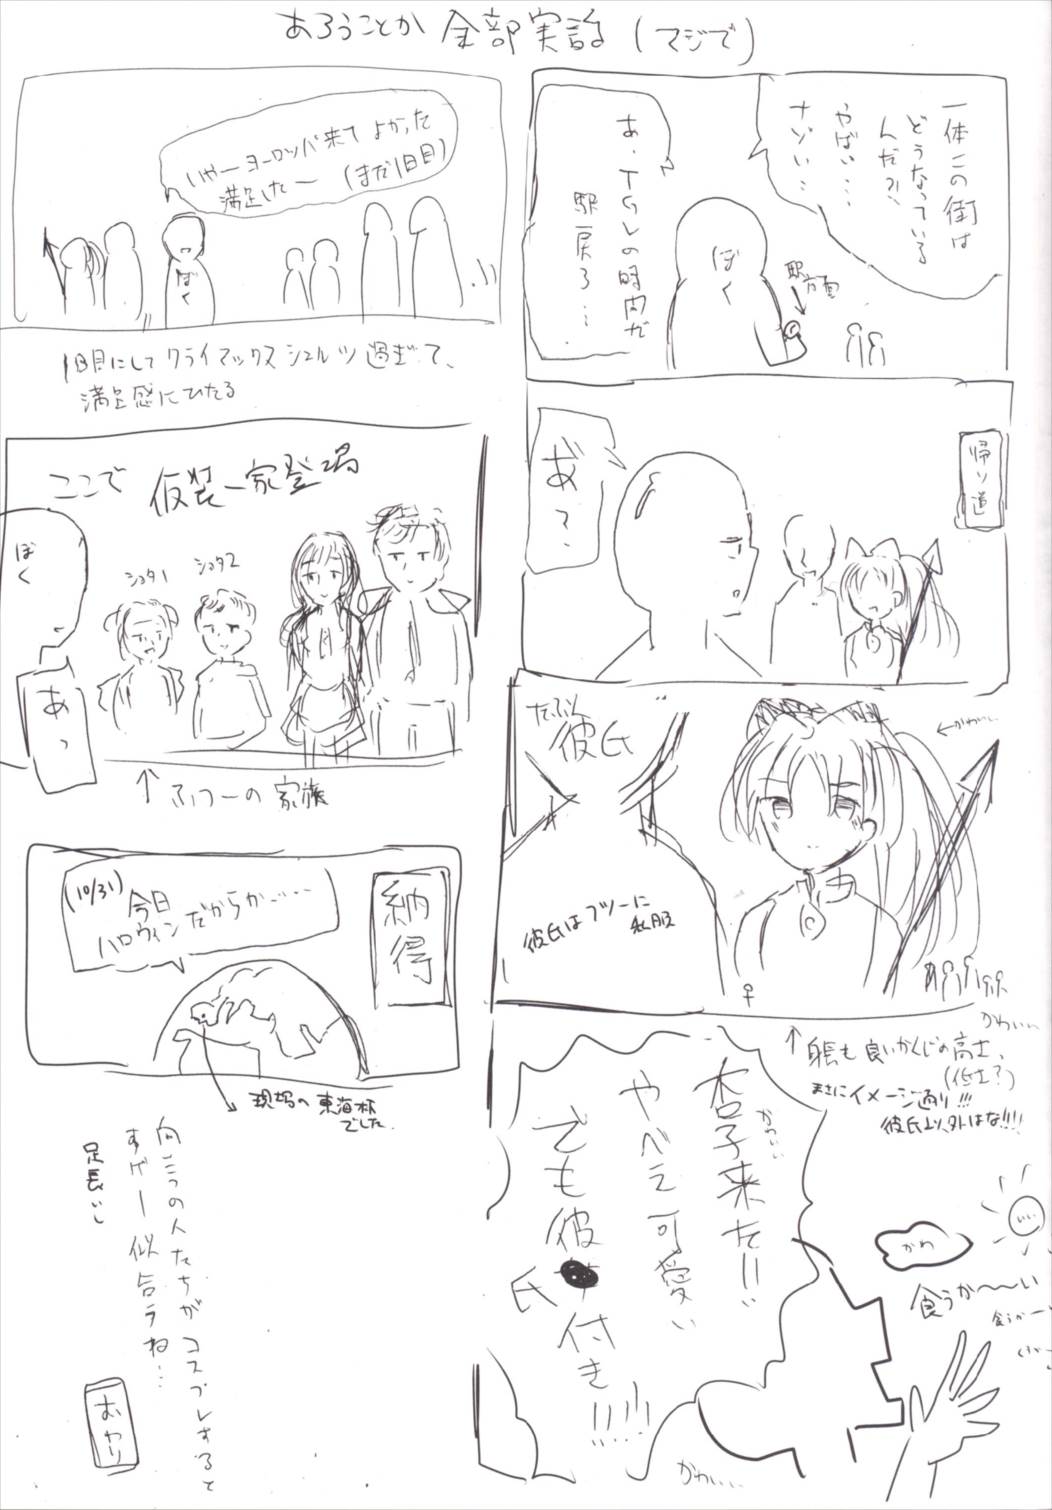 あろうことか 全部実話(マジで)
一体この街は
どうなっている
んだ?!
やばい…
ナゾい…
あ、TGVの時間だ
駅戻ろ…
ぼく
駅方面
帰り道
あ?
たぶん
彼氏
彼氏はフツーに
私服
←かわいい
♀
かわいい
↑身長も良いかんじの高さ、
(低さ?)
まさにイメージ通り!!!
彼氏以外はな!!!!
杏子来た!!
かわいい
やべえ可愛い
でも彼氏付き!!!!
かわ
いい
食うか〜〜い
食うかー
かわいい
いやーヨーロッパ来てよかった
満足したー (まだ1日目)
ぼく
1日目にしてクライマックスシュルツ過ぎて、
満足感にひたる
ここで 仮装一家登場
ぼく
ショタ1
ショタ2
あっ
↑ふつーの家族
(10/31)
今日
ハロウィンだからか……
納得
現場へ東海林
でした
向こうの人たちがコスプレすると
すげー似合うね…
足長いし
おわり